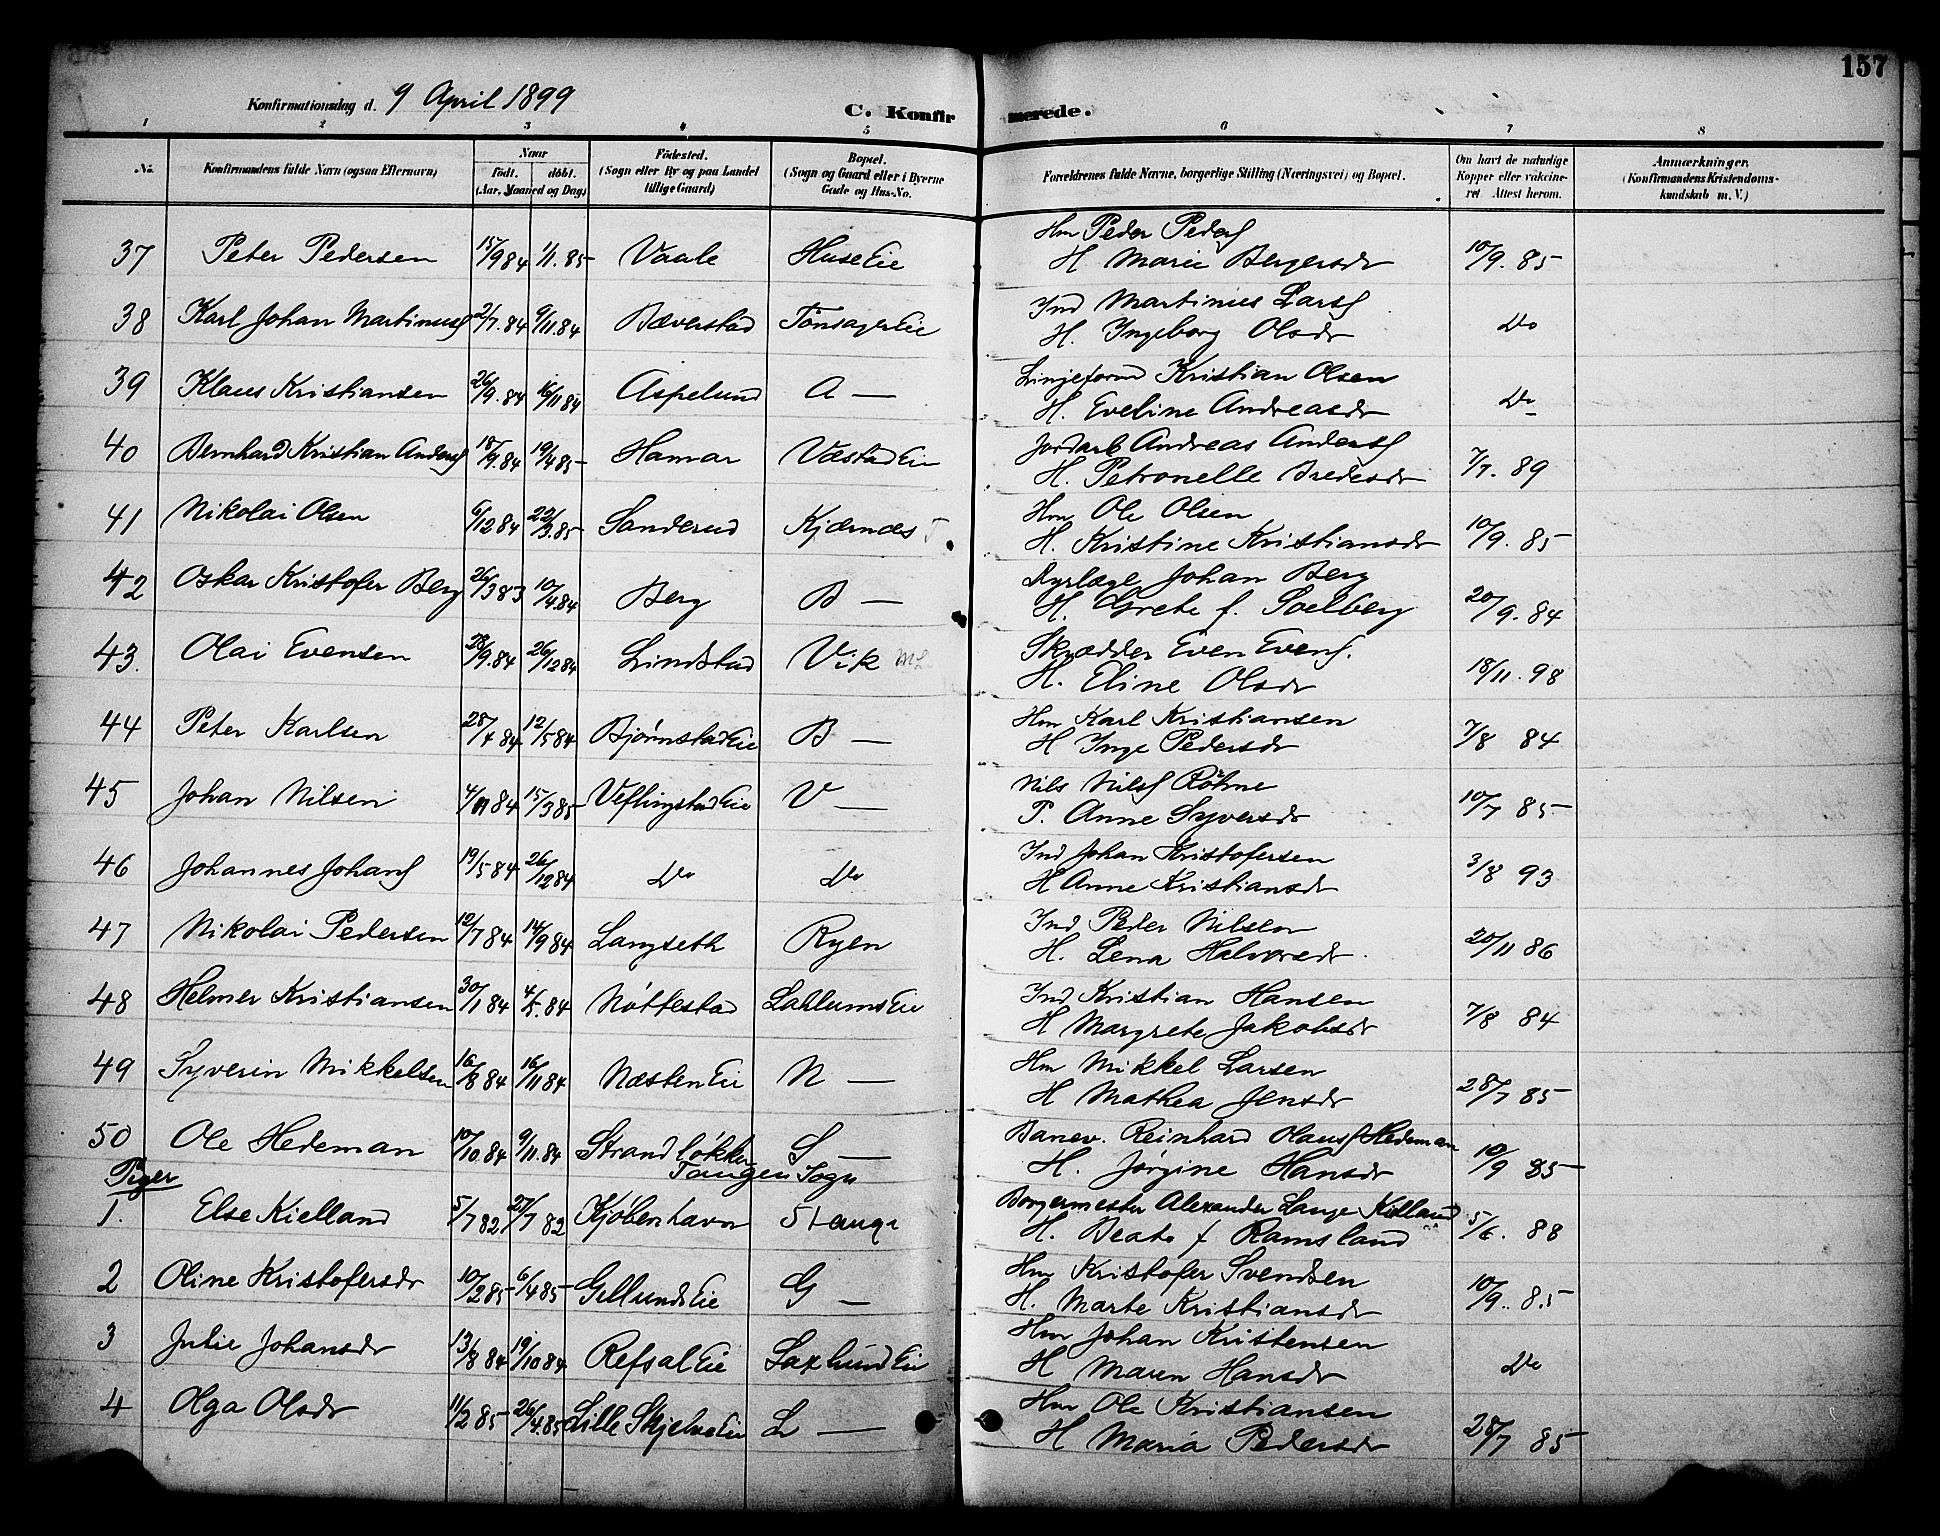 157
Konfirmationsdag d. 9 April 1899
C. Konfirmerede.
1 2 3 4 5 6 7 8
No. Konfirmandens fulde Navn (ogsaa Efternavn) Naar født. døbt. (Aar, Maaned og Dag.) Fødested. (Sogn eller By og paa Landet tillige Gaard) Bopæl. (Sogn og Gaard eller i Byerne Gade og Hus-No. Forældrenes fulde Navne, borgerlige Stilling (Næringsvei) og Bopæl. Om havt de naturlige Kopper eller vakcineret Attest herom. Anmærkninger. (Konfirmandens Kristendomskundskab m. V.)
37 Peter Pedersen 15/9 84 1/1. 85 Vaale HuseEie Hm Peder Peders H Marie Bergersdr 10/9. 85
38 Karl Johan Martinus 2/7. 84 9/11 84 Bæverstad Eie Ind Martinus Lars H. Ingeborg Olsdr Do
39 Klaus Kristiansen 26/9. 84 16/11 84 Aspelund A — Kristian Olsen H. Eveline Andreasdr Do
40 Bernhard Kristian Anders 18/9. 84 19/4 85 Hamar VæstadEie Jordarb Andreas Anders H. Petronelle Bredesdr 7/7. 89
41 Nikolai Olsen 6/12 84 22/3. 85 Sanderud Kjærnæs Hm Ole Olsen H. Kristine Kristiansdr 10/9. 85
42 Oskar Kristofer Berg 26/3 83 10/4. 84 Berg B — Dyrlæge Johan Berg H. Grete f. Soelberg 20/9. 84
43. Olai Evensen 28/9. 84 26/12 84 Lindstad Vik Skrædder Even Evens. H. Eline Olsdr 18/11. 98
44 Peter Karlsen 28/4 84 12/5 84 BjørnstadEie B — Hm Karl Kristiansen H Inge Pedersdr 7/8 84
45 Johan Nilsen 4/11 84 15/3 85 VeflingstadEie V — Nils Nils Røhne P. Anne Syversdr 10/7 85
46 Johannes Johans 19/5 84 26/12 84 Do Do Ind Johan Kristofersen H Anne Kristiansdr 3/8 93
47 Nikolai Pedersen 12/7 84 14/9 84 Langseth Ryen Ind Peder Nilsen H. Lena Halvorsdr. 20/11 86
48 Helmer Kristiansen 30/1 84 4/5. 84 Nøttestad LahlumsEie Ind Kristian Hansen H Margrete Jakobsdr 7/8 84
49 Syverin Mikkelsen 16/8 84 16/11 84 NæstenEie N — Hm Mikkel Larsen H Mathea Jensdr 28/7 85
50 Ole Hedeman 10/10. 84 9/11. 84 Strandløkken Tangen Sogn S — Banev. Reinhard Olaus Hedeman H. Jørgine Hansdr 10/9 85
Piger
1. Else Kielland 5/7 82 27/7 82 Kjøbenhavn Stange Borgermester Alexander Lange Kielland H. Beate f Ramsland 5/6. 88
2 Oline Kristofersdr 10/2 85 6/4 85 GillundsEie G — Hm Kristofer Svendsen H. Marte Kristiansdr 10/9. 85
3 Julie Johansdr 13/8 84 19/10 84 RefsalEie SaxlundEie Hm Johan Kristensen H Maren Hansdr Do
4 Olga Olsdr 11/2 85 26/4. 85 Lille SkjelveEie L — Hm Ole Kristiansen H Maria Pedersdr 28/7 85